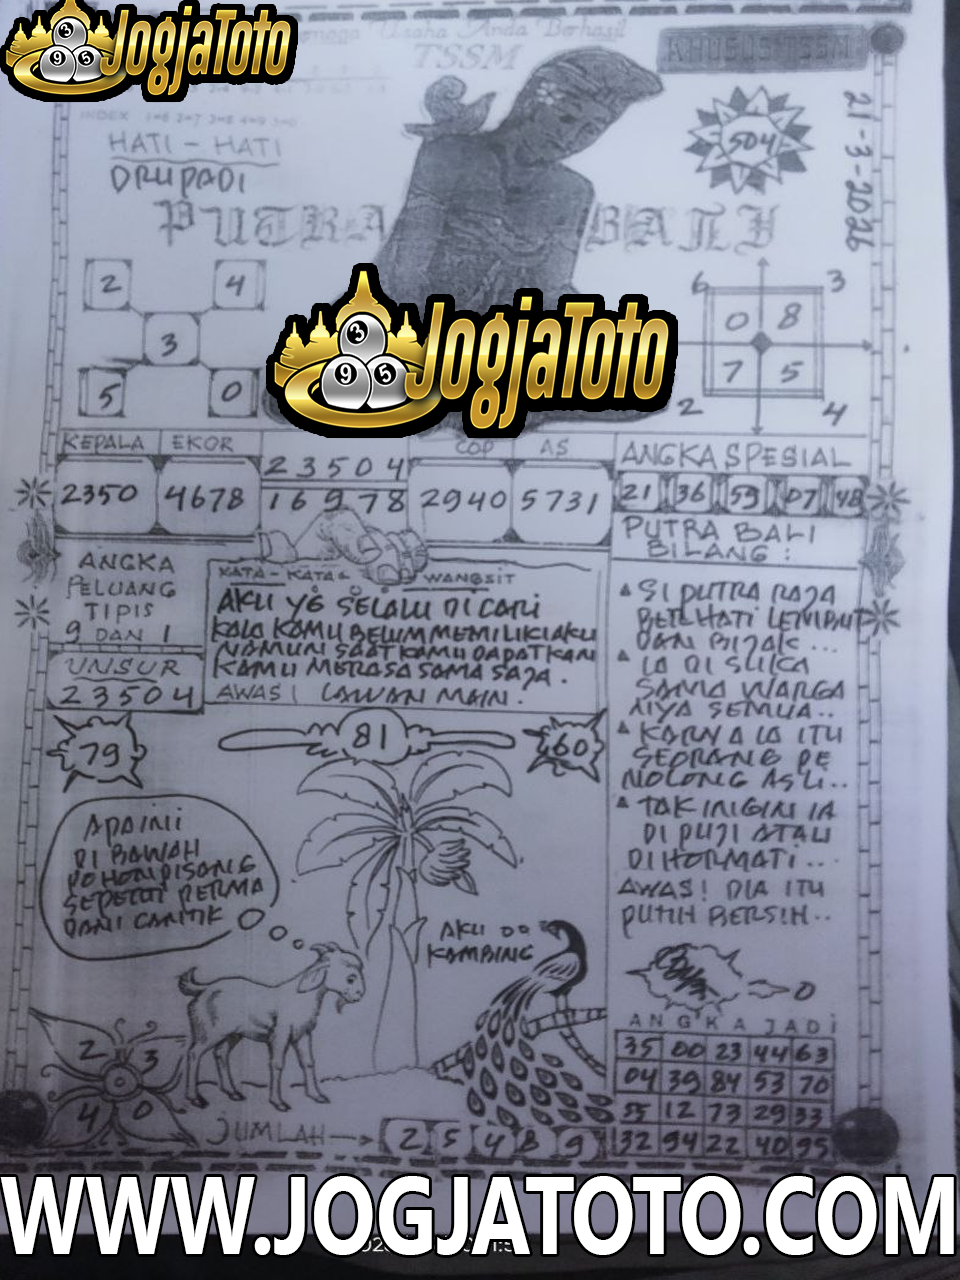 JogjaToto
Usaha Anda Berhasil
TSSM
21-3-2026
INDEX 1=6 2=7 3=8 4=9 5=0
HATI - HATI
DRUPADI
504
PUTRA BALI
2 4
3
5 0
JogjaToto
6 3
0 8
7 5
2 4
KEPALA EKOR
COP AS
ANGKA SPESIAL
2350 4678
23504
16978
2940 5731
21 36 59 07 48
PUTRA BALI
BILANG :
ANGKA
PELUANG
TIPIS
9 DAN 1
UNSUR
23504
KATA - KATA WANGSIT
AKU YG SELALU DI CARI
KALA KAMU BELUM MEMILIKI AKU
NAMUN SAAT KAMU DAPATKAN
KAMU MERASA SAMA SAJA.
AWAS! LAWAN MAIN.
SI PUTRA RAJA
BERHATI LEMBUT
DAN BIJAK ...
IA DI SUKA
SAMA WARGA
NYA SEMUA..
KARNA IA ITU
SEORANG PE
NOLONG ASLI..
TAK INGIN IA
DI PUJI ATAU
DI HORMATI...
AWAS! DIA ITU
PUTIH BERSIH..
79
81
60
APA INI
DI BAWAH
POHON PISANG
SEPERTI PERMA
DANI CANTIK
AKU DO
KAMBING
0
2 3
4 0
JUMLAH
2 5 4 8 9
ANGKA JADI
35 00 23 44 63
04 39 84 53 70
55 12 73 29 33
32 94 22 40 95
WWW.JOGJATOTO.COM